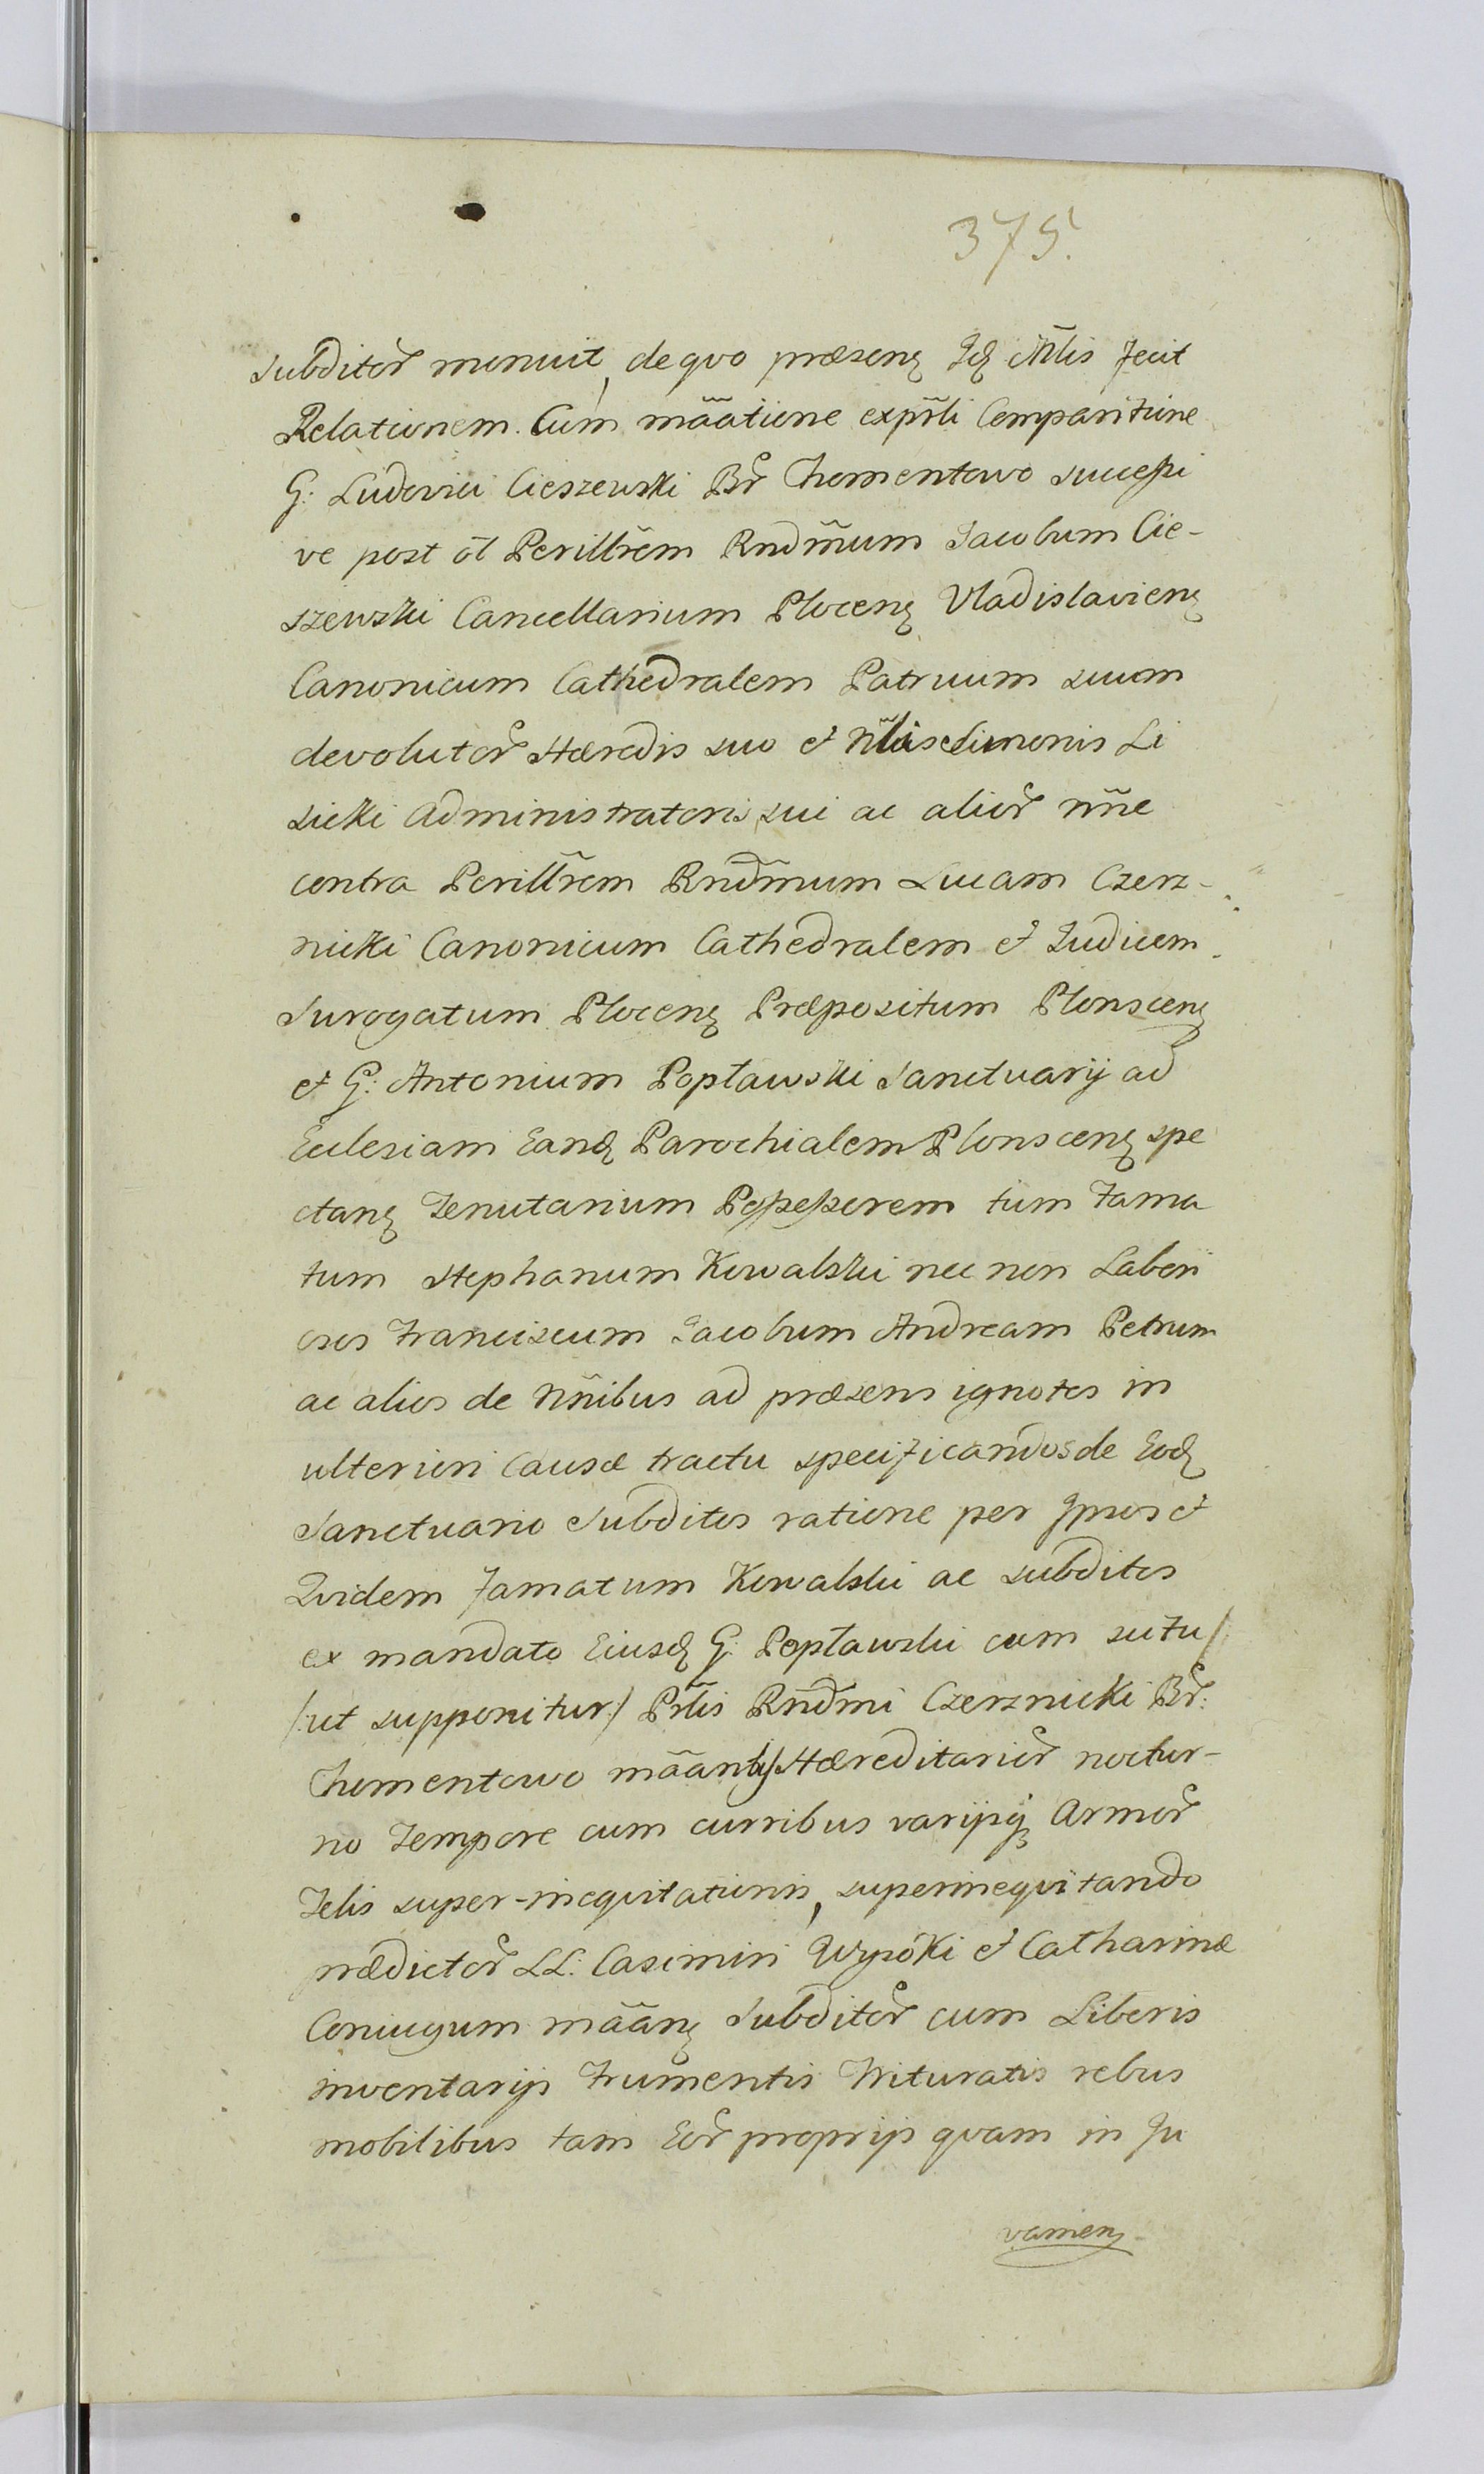 375.
Subditor̃ monuit, de qvo præsenȩ Idȩ Nl̃is fecit
Relationem. Cum mãatione exprl̃i Comparitione
G: Ludovici Cieszewski Br̃ Chomentowo successi
ve post ol̃ Perillr̃em Rndm̃um Jacobum Cie-
szewski Cancellarium Plocenȩ Vladislavienȩ
Canonicum Cathedralem Patruum suum
devolutor̃ Hæredis suo et Nl̃is Simonis Li
sicki Administratoris sui ac alior̃ nñe
contra Perillr̃em Rndm̃um Lucam Czerz-
nicki Canonicum Cathedralem et Judicem
Surogatum Plocenȩ Præpositum Plonscenȩ
et G: Antonium Popławski Sanctuarij ad
Eclesiam Eandȩ Parochialem Plonscenȩ spe
ctanȩ Tenutarium Possessorem tum Fama
tum Stephanum Kowalski nec non Labori
osos Franciscum Jacobum Andream Petrum
ac alios de Nñibus ad præsens ignotos in
ulteriori Causæ tractu specificandos de Eodȩ
Sanctuario Subditos ratione per Ipsos et
Qvidem Famatum Kowalski ac subditos
ex mandato Eiusdȩ G: Popławski cum scitu/
/:ut supponitur:/ Prl̃is Rndm̃i Czerznicki Br̃:
Chomentowo mãantibus Hæreditarior̃ noctur-
no Tempore cum curribus varijsqȝ Armor̃
Telis super-ineqvitationis, superineqvitando
prædictor̃ LL: Casimiri Wysoki et Catharinæ
Coniugum mãanȩ Subditor̃ cum Liberis
inventarijs Frumentis Trituratis rebus
mobilibus tam Eor̃ proprijs qvam in Ju
vamenȩ